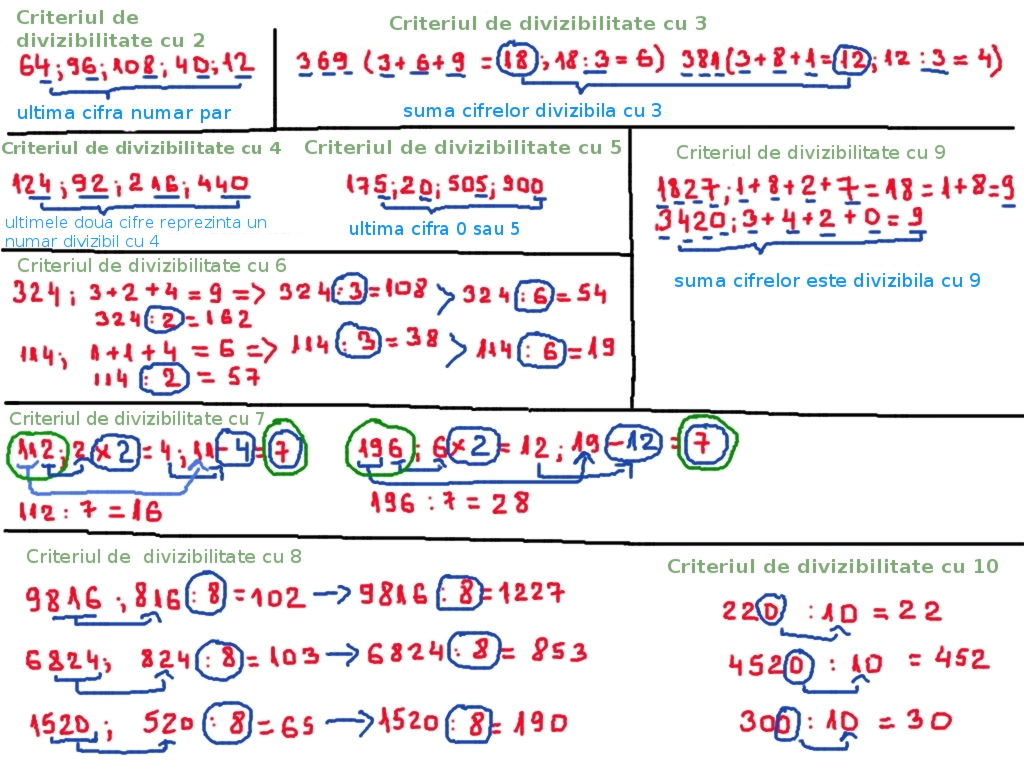 Criteriul de
divizibilitate cu 2
64;96;108;40;12
ultima cifra numar par
Criteriul de divizibilitate cu 3
369 (3+6+9 = 18;18:3=6) 381(3+8+1=12;12:3=4)
suma cifrelor divizibila cu 3
Criteriul de divizibilitate cu 4
124;92;216;440
ultimele doua cifre reprezinta un
numar divizibil cu 4
Criteriul de divizibilitate cu 5
175;20;505;900
ultima cifra 0 sau 5
Criteriul de divizibilitate cu 9
1827;1+8+2+7=18=1+8=9
3420;3+4+2+0=9
suma cifrelor este divizibila cu 9
Criteriul de divizibilitate cu 6
324; 3+2+4=9 => 324:3=108 > 324:6=54
324:2=162
114; 1+1+4 = 6 => 114:3=38 > 114:6=19
114:2=57
Criteriul de divizibilitate cu 7
112;2×2=4;11-4=7
112:7=16
196;6×2=12;19-12=7
196:7=28
Criteriul de divizibilitate cu 8
9816;816:8=102→9816:8=1227
6824; 824:8=103→6824:8=853
1520; 520:8=65→1520:8=190
Criteriul de divizibilitate cu 10
220:10=22
4520:10=452
300:10=30